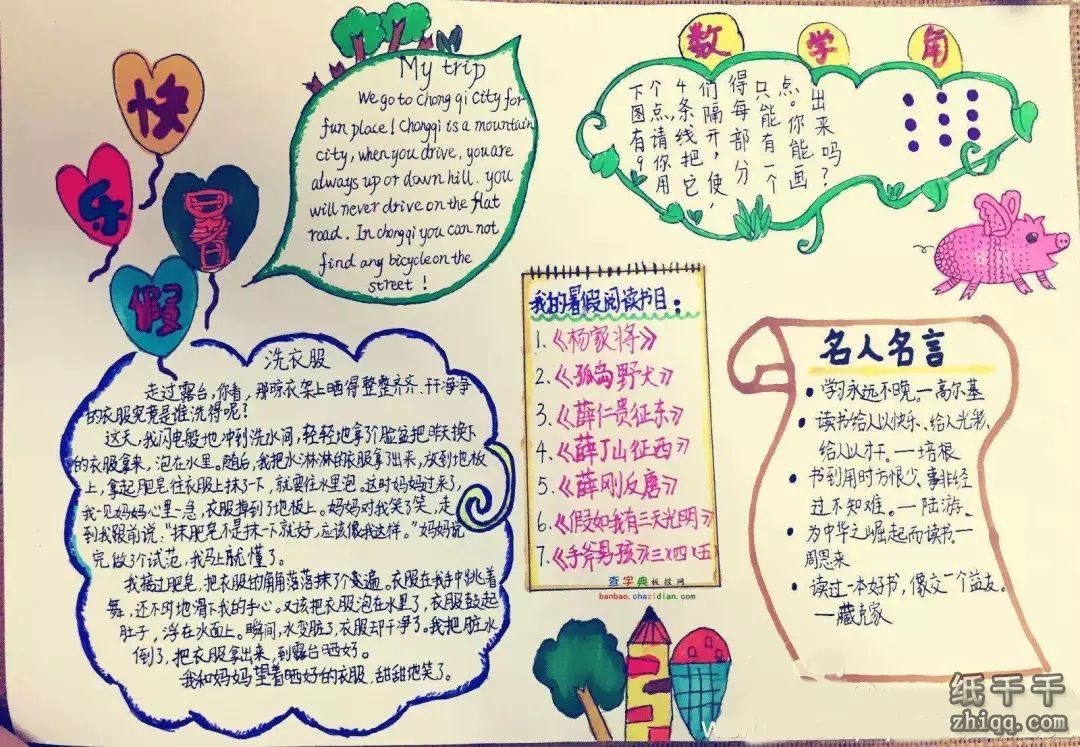 快
乐
暑
假
My trip
We go to chong qi city for
fun place! Chongqi is a mountain
city, when you drive, you are
always up or down hill. you
will never drive on the flat
road. In chongqi you can not
find any bicycle on the
street!
数学角
下图有9
个点,请你用
4条线把它
们隔开,使
得每部分
只能有一个
点。你能画
出来吗?
洗衣服
走过露台,你看,那晾衣架上晒得整整齐齐、干干净净
的衣服究竟是谁洗得呢?
这天,我闪电般地冲到洗水间,轻轻地拿了脸盆把昨天换下
的衣服拿来,泡在水里。随后,我把水淋淋的衣服拿了出来,放到地板
上,拿起肥皂往衣服上抹了一下,就要往水里泡。这时妈妈过来了,
我一见妈妈心里一急,衣服掉到了地板上。妈妈对我笑了笑,走
到我跟前说:“抹肥皂不是抹一下就好,应该像我这样。”妈妈说
完做了个试范,我马上就懂了。
我接过肥皂,把衣服的角角落落抹了个遍。衣服在我手中跳着
舞,还不时地滑下我的手心。又该把衣服泡在水里了,衣服鼓起
肚子,浮在水面上。瞬间,水变脏了,衣服却干净了。我把脏水
倒了,把衣服拿出来,到露台晒好。
我和妈妈望着晒好的衣服,甜甜地笑了。
我的暑假阅读书目:
1.《杨家将》
2.《孤岛野犬》
3.《薛仁贵征东》
4.《薛丁山征西》
5.《薛刚反唐》
6.《假如我有三天光明》
7.《手斧男孩》三、四、五
查字典板报网
banbao.chazidian.com
名人名言
学习永远不晚。—高尔基
读书给人以快乐、给人光彩、
给人以才干。—培根
书到用时方恨少、事非经
过不知难。—陆游
为中华之崛起而读书—
周恩来
读过一本好书,像交一个益友。
—臧克家
纸千千
zhiqq.com